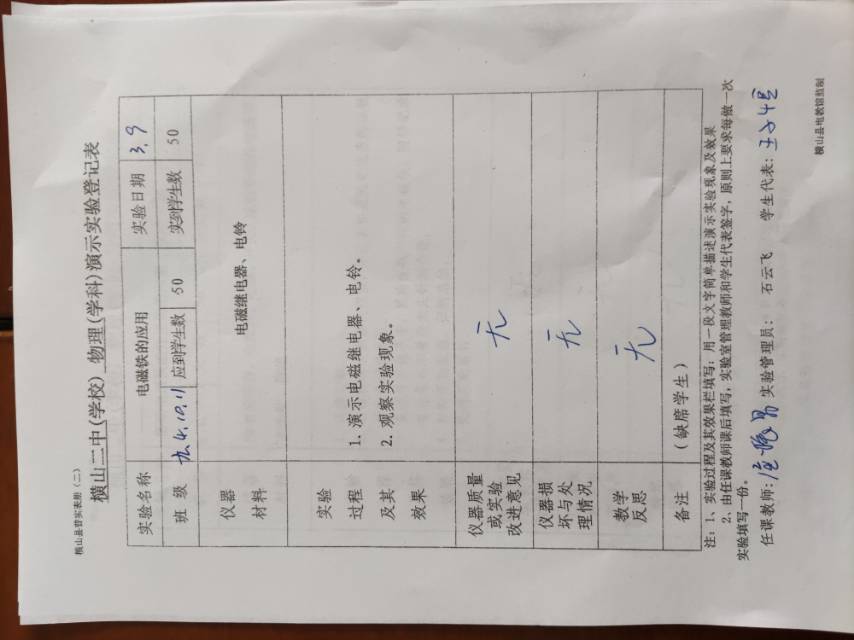 横山县普实表册（二）
横山二中(学校) 物理(学科)演示实验登记表
实验名称 电磁铁的应用 实验日期 3.9
班 级 九.4.10.11 应到学生数 50 实到学生数 50
仪器
材料
电磁继电器、电铃
实验
过程
及其
效果
1. 演示电磁继电器、电铃。
2. 观察实验现象。
仪器质量
或实验
改进意见
无
仪器损
坏与处
理情况
无
教学
反思
无
备注 (缺席学生)
注：1、实验过程及其效果栏填写：用一段文字简单描述演示实验现象及效果
2、由任课教师课后填写，实验室管理教师和学生代表签字，原则上要求每做一次
实验填写一份。
任课教师: 实验管理员: 石云飞 学生代表: 王
横山县电教馆监制